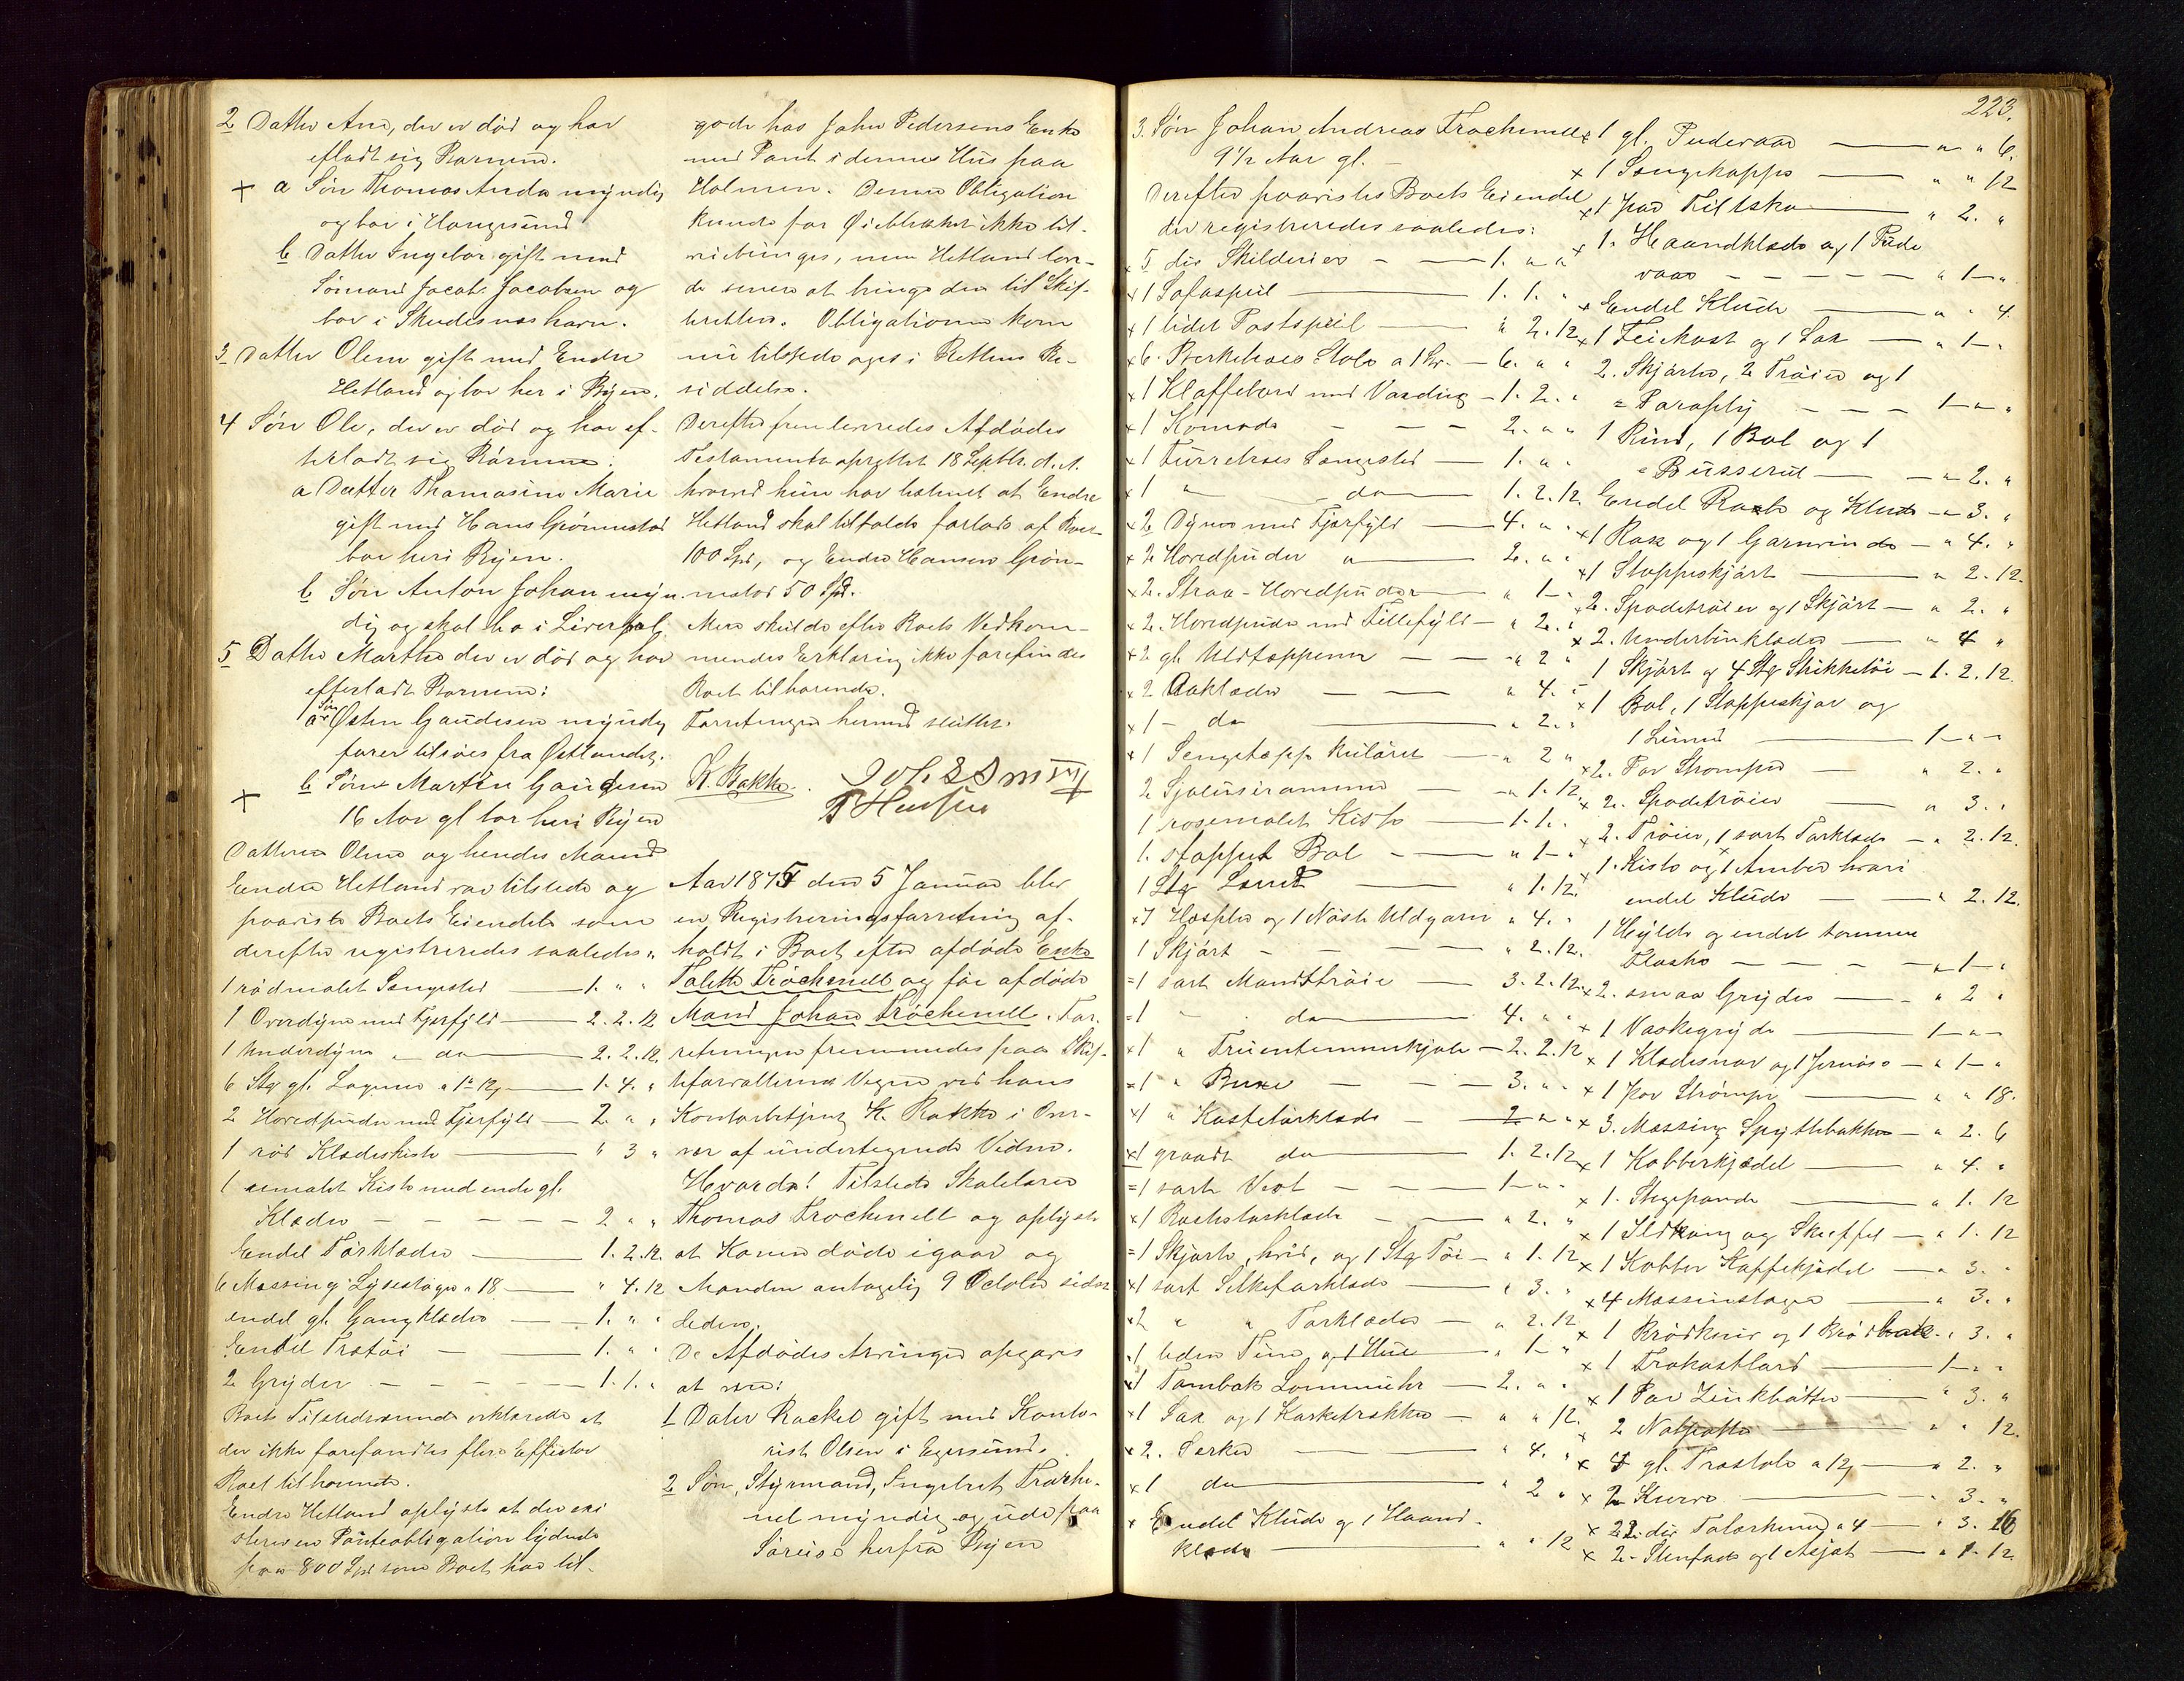 2 Datter Ane, der er död og har
efladt sig Børnene.
+ a Sön Thomas Anda myndig
og bor i Haugesund
b Datter Ingebor gift med
Sömand Jacob Jacobsen og
bor i Skudesnæshavn.
3 Datter Olene gift med Endre
Hetland og bor her i Byen.
4 Sön Ole, der er död og har ef-
terladt sig Börnene:
a Datter Thomasine Marie
gift med Hans Grönnestad
bor heri Byen.
b Sön Anton Johan myn-
dig og skal bo i Liverpol
5 Datter Marthe der er död og har
efterladt Börnene:
a Sön Østen Gaudesen myndig
farer tilsöes fra Østlandet.
+ b Sön Martin Gaudesen
16 Aar gl bor heri Byen
Datteren Olene og hendes Mand
Endre Hetland var tilstede og
paaviste Boets Eiendele som
derefter registreredes saaledes:
1 rödmalet Sengested — 1. " "
1 Overdyne med Fjerfyld — 2. 2. 12
1 Underdyne " do — 2. 2. 12.
6 Stk gl. Lagene a 1 12 — 1. 4. "
2 Hovedpuder med Fjerfyld — 2. " "
1 röd Klædeskiste — " 3 "
1 umalet Kiste med ende gl.
Klæder — 2 " "
Endel Törklæder — 1. 2. 12.
6 Messing Lysestager a 18 — " 4. 12
endel gl. Gangklæder — 1. " "
Endel Trætöi — 1. " "
2 Gryder — 1. 1. "
Boets Tilstedeværende erklærede at
der ikke forefandtes flere Effecter
Boet tilhörende.
Endre Hetland oplyste at der exi
sterer en Panteobligation lydende
paa 800 Spd som Boet har til-
gode hos John Pedersens Enke
med Pant i dennes Hus paa
Holmen. Denne Obligation
kunde for Øieblikket ikke til-
veiebringes, men Hetland lov-
de senere at bringe den til Skif-
teretten. Obligationen kom
nu tilstede og es i Rettens Be-
siddelse.
Derefter fremlevredes Afdödes
Testamente oprettet 18 Septbr. d. A.
hvorved hun har bestemt at Endre
Hetland skal tilfalde forlods af Boet
100 Spd, og Endre Hansen Grön-
nestad 50 Spd.
Mere skulde efter Boets Vedkom-
mendes Erklæring ikke forefindes
Boet tilhörende.
Forretningen hermed sluttet.
K. Bakke.
Aar 1875 den 5 Januar blev
en Registreringsforretning af-
holdt i Boet efter afdöde Enke
Talette Tröchenell og för afdöde
Mand Johan Tröchenell. For-
retningen fremmedes paa Skif-
teforvalterens Vegne ved hans
Kontorbetjent K. Bakke i Over-
vær af undertegnede Vidner.
Hvorda! Tilstede Skolelærer
Thomas Trochenell og oplyste
at Konen döde igaar og
Manden antagelig 9 October sidst
leden.
De Afdödes Arvinger opgaves
at være:
1 Dater Rackel gift med Konto-
rist Olsen i Egersund.
2 Sön, Styrmand, Ingebret Troche-
nel myndig og ude paa
Söreise herfra Byen
223.
3. Sön Johan Andreas Trochenell
9 1/2 Aar gl. —
Derefter paavistes Boets Eiendel
der registreredes saaledes:
x 5 div Skilderier — 1. " "
x 1 Sofaspeil — 1. 1. "
x 1 lidet Postspeil — " 2. 12
x 6. Berketræs Stole a 1 Ort. — 6. " "
x 1 Klaffebord med Voxdug — 1. 2. "
x 1 Komode — 2. " "
x 1 Furretræs Sengested — 1. " "
x 1 " do — 1. 2. 12.
x 2 Dyner med Fjerfyld — 4. " "
x 2 Hovedpuder " — 2. " "
x 2. Straa-Hovedpuder — " 1 - "
x 2. Hovedpuder med Fillefyld — " 2. "
x 2 gl. Uldtæpper — " 2 "
x 2 Aaklæder — " 4. "
x 1 - do — " 2. "
x 1 Sengetæppe kulöret — " 2 "
2 Sjalusiramme — " 1. 12.
1 rosemalet Kiste — 1. 1. "
1. stoppet Bol — " 1 - "
1 Stg Lærred — " 1. 12.
x 7 Hespler og 1 Nöste Uldgarn " 4. "
1 Skjört — " 2. 12.
=1 sort Mandströie — 3. 2. 12.
=1 " do — 4. " "
x1 " Fruentemmerkjole — 2. 2. 12
=1 " Buxe — 3. " "
x1 " Kastetörklæde — 2 " "
x1 graadt do — 1. 2. 12
=1 sort Vest — 1 - " -
x1 Bomuldstörklæde — " 2. "
=1 Skjorte, hvid, og 1 Stg Töi — " 1. 12
x1 sort Silketörklæde — " 3. "
x2 " " Törklæder — " 2. 12
x1 liden Tine og 1 Hue — " 1 - "
x1 Tombak Lommeuhr — 2. " "
x1 Sax og 1 Korketrækker — " " 12.
x 2. Særker — " 4. "
x 1 do — " 2 "
x Endel Klude og 1 Haand-
klæde — " " 12
x 1 gl. Pudevaar — " " 6.
x 1 Sengekappe — " " 12
x 1 par Filtsko — " 2. "
x 1. Haandklæde og 1 Pude
vaar — " 1 - "
x Endel Klude — " " 4.
x 1 Feiekost og 1 Sax — " 1 - "
2. Skjörter, 2 Tröier og 1
= Paraply — 1 - " "
1 Pund, 1 Bol og 1
= Busserul — " 2. "
Endel Rask og Klude — " 3. "
x 1 Rok og 1 Garnvinde — " 4. "
x 1 Stoppeskjört — " 2. 12.
x 2. Spadetröier og 1 Skjört — " 2. "
x 2. Underbenklæder — " 4 "
1 Skjört og 4 Stg Strikketöi — 1. 2. 12.
x 1 Bol, 1 Stoppeskjör og
1 — 1 - " -
x 2. Par Strömper — " 2. "
x 2. Spadetröier — " 3. "
x 2. Tröier, 1 sort Törklæde — " 2. 12.
x 1. Kiste og 1 Amber hvori
endel Klude — " 2. 12.
1 Hylde og endel tomme
Flasker — " 1 - "
x 2. smaa Gryder — " 2 "
x 1 Vaskegryde — 1 - " -
x 1 Klædesnor og 1 Jernöse — " 1 - "
x 1 Par Strömper — " " 18.
x 3. Messing Spyttebakker — " 2. 6
x 1 Kobberkjædel — " 4. "
x 1. Stegepande — " 1. 12
x 1 Ildtang og Skuffel — " 1. 12
x 1 Kobber Kaffekjedel — " 3. "
x 4 Messinstager — " 3. "
x 1 Brödkniv og 1 Brödbak — " 3. "
x 1 Frokostbord — 1 - " "
x 1 Par Zinkbötter — " 3. "
x 2 Natpotter — " " 12.
x 4 gl. Træstole a 12 — " 2. "
x 2 Kurve — " 3. "
x 22 div Talerkener a 4 — " 3. 16
x 2. Stenfade og 1 Asjet — " 1. 12.